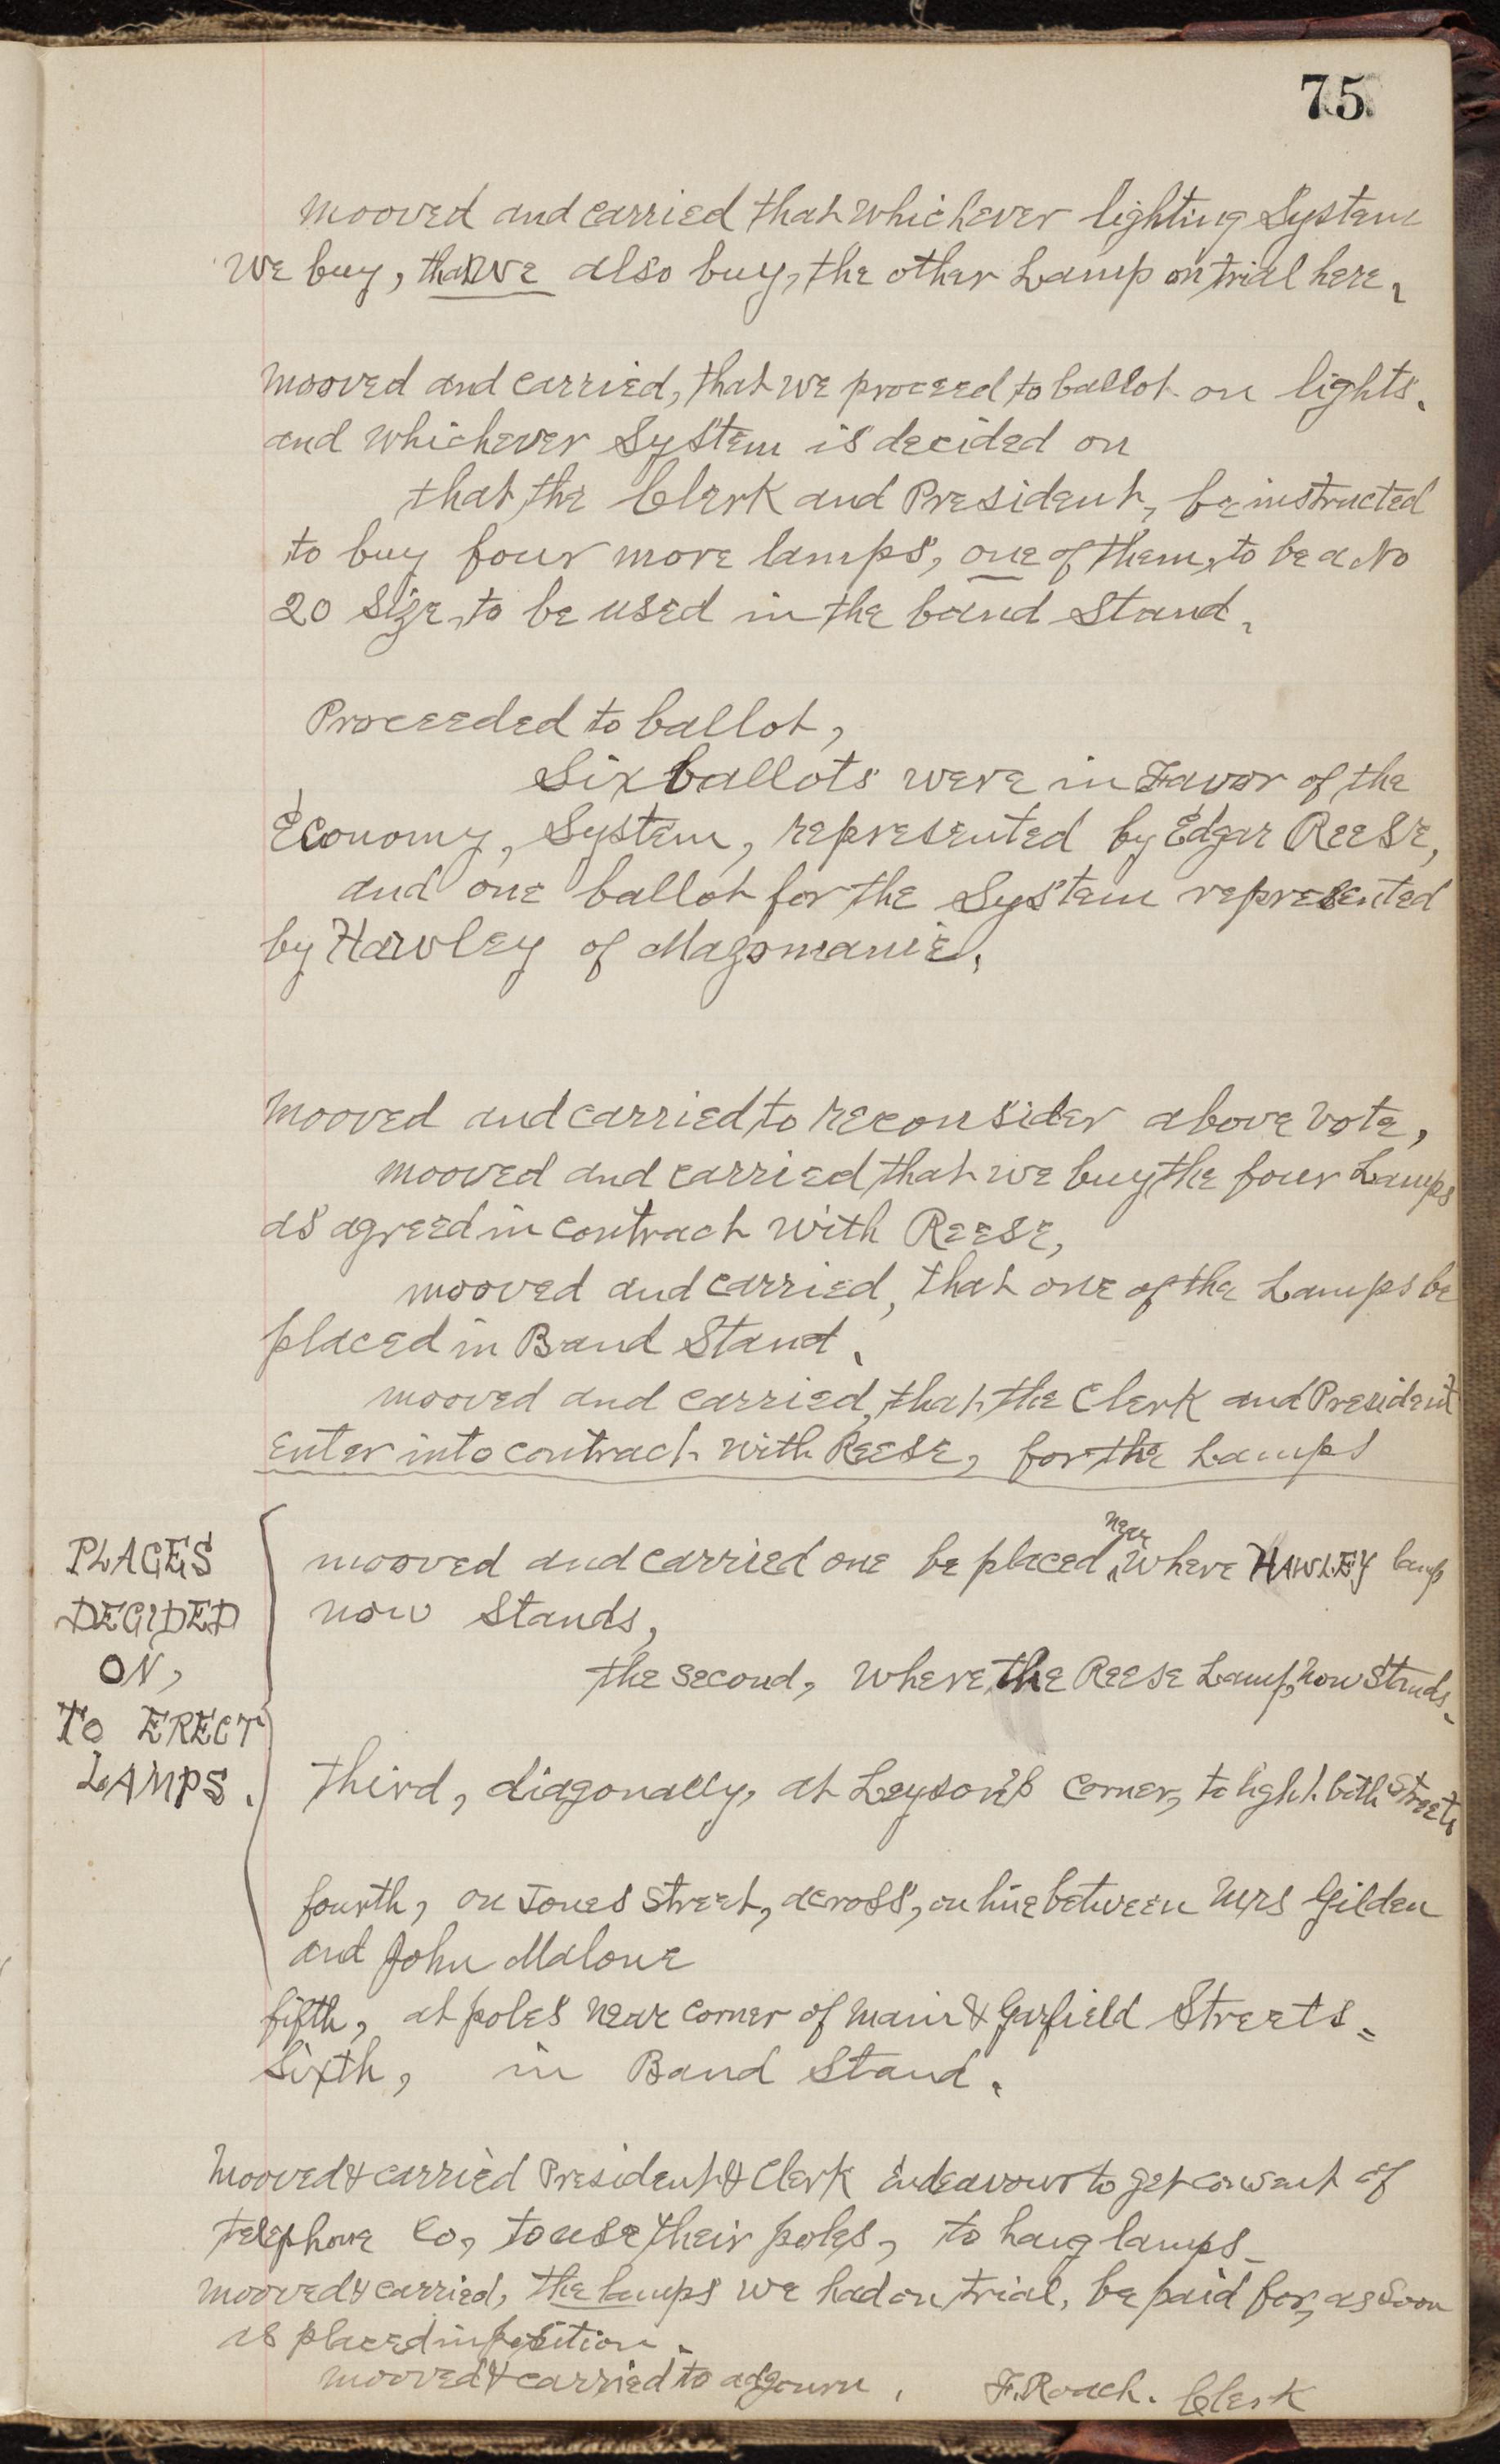 75
mooved and carried that whichever lighting System
we buy, that we also buy, the other Lamp on trial here.
mooved and carried, that we proceed to ballot on lights.
and whichever System is decided on
that the Clerk and President, be instructed
to buy four more lamps, one of them, to be a No
20 Size, to be used in the band Stand.
Proceeded to ballot,
Six ballots were in Favor of the
Economy, System, represented by Edgar Reese,
and one ballot for the System represented
by Hawley of Mazomanie.
mooved and carried to reconsider above vote,
mooved and carried that we buy the four Lamps
as agreed in contract with Reese,
mooved and carried, that one of the Lamps be
placed in Band Stand.
mooved and carried, that the Clerk and President
Enter into contract with Reese, for the Lamps
PLACES
DECIDED
ON,
TO ERECT
LAMPS.
mooved and carried one be placed near where HAWLEY lamp
now Stands,
the second, where the Reese Lamp, now Stands.
third, diagonally, at Leyson's corner, to light both Streets
fourth, on Jones Street, across, on line between Mrs Gilden
and John Malone
fifth, at poles near corner of Main & Garfield Streets.
Sixth, in Band Stand.
Mooved & carried President & Clerk Endeavour to get consent of
telephone Co, to use their poles, to hang lamps.
mooved & carried, the lamps we had on trial, be paid for, as soon
as placed in position.
mooved & carried to adjourn. F. Roach. Clerk